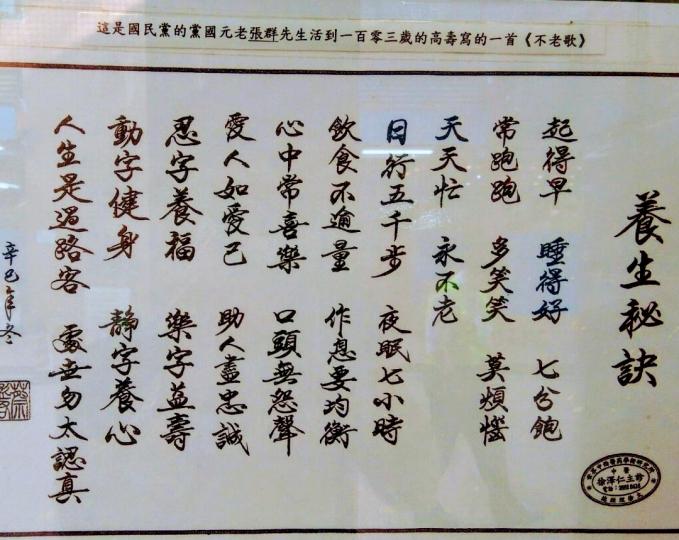 這是國民黨的黨國元老張群先生活到一百零三歲的高壽寫的一首《不老歌》
養生秘訣
起得早 睡得好 七分飽
常跑跑 多笑笑 莫煩惱
天天忙 永不老
日行五千步 夜眠七小時
飲食不逾量 作息要均衡
心中常喜樂 口頭無怨聲
愛人如愛己 助人盡忠誠
忍字養福 樂字益壽
動字健身 靜字養心
人生是過路客 處世勿太認真
辛巳年冬
中醫
徐澤仁主診